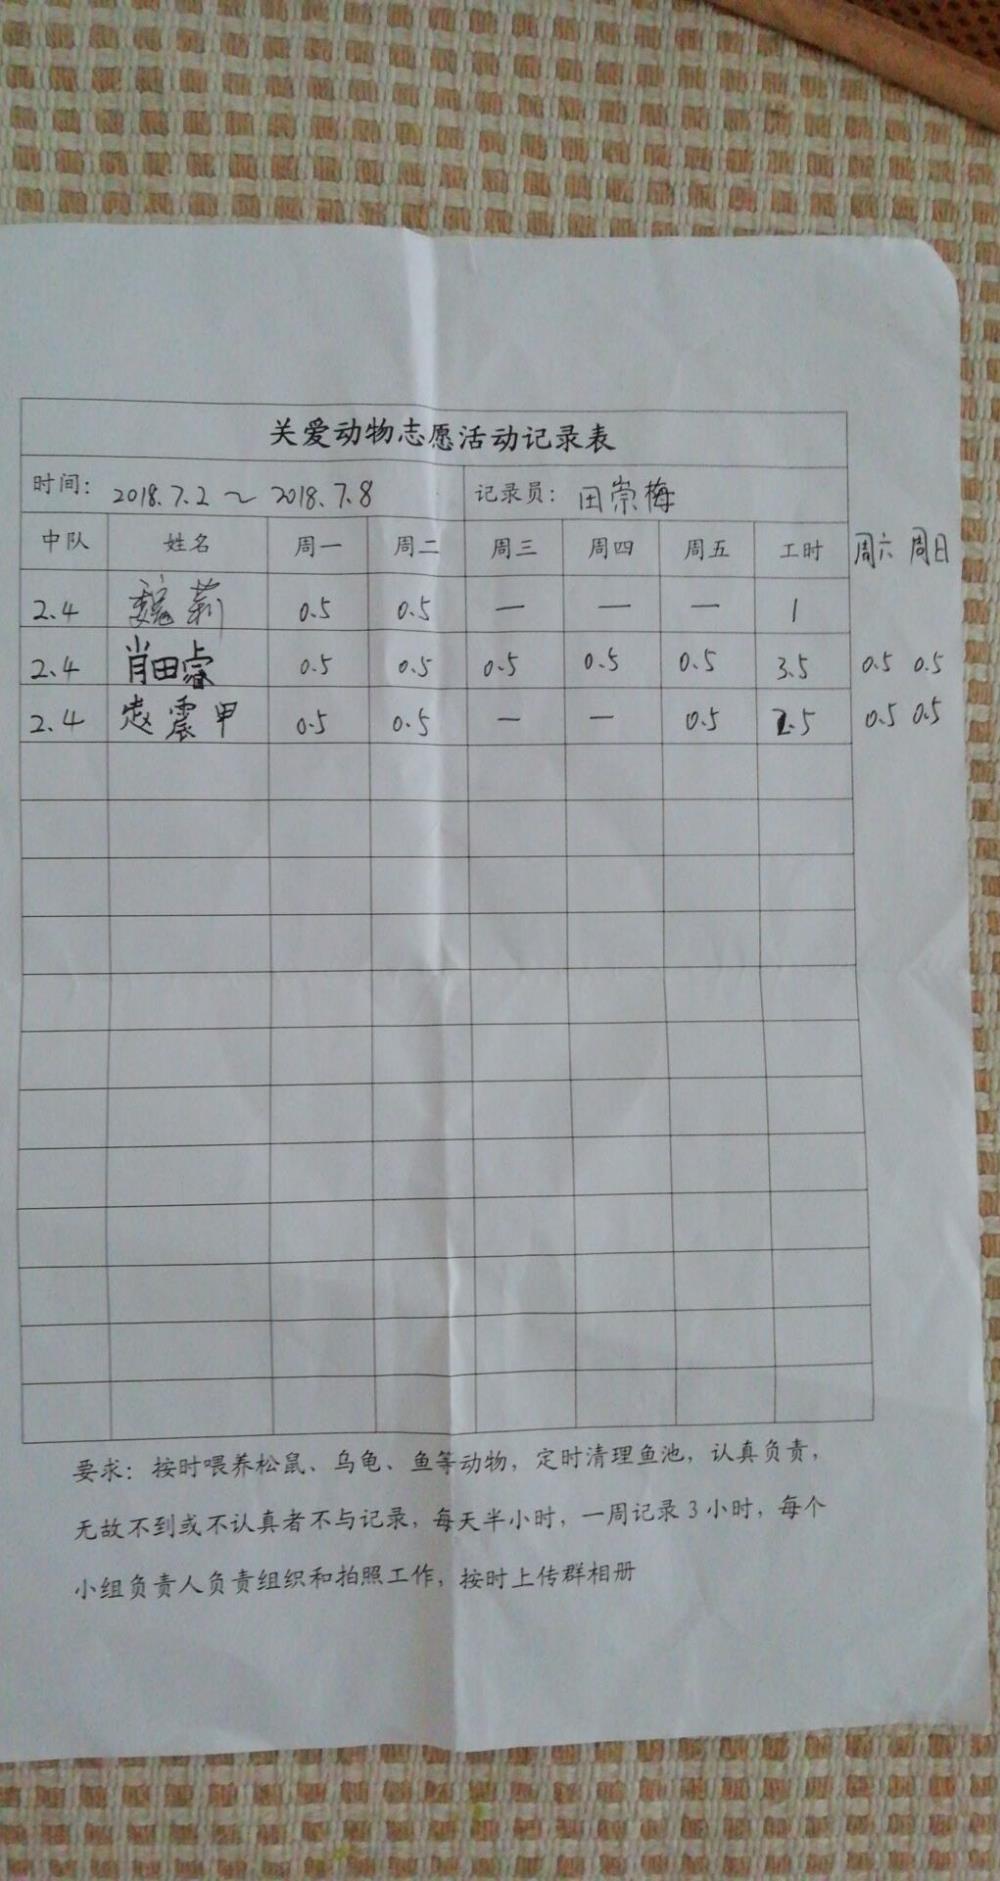 关爱动物志愿活动记录表
时间: 2018.7.2 ~ 2018.7.8 记录员: 田崇梅
中队 姓名 周一 周二 周三 周四 周五 工时 周六 周日
2.4 魏莉 0.5 0.5 — — — 1
2.4 肖田睿 0.5 0.5 0.5 0.5 0.5 3.5 0.5 0.5
2.4 赵震甲 0.5 0.5 — — 0.5 2.5 0.5 0.5
要求: 按时喂养松鼠、乌龟、鱼等动物, 定时清理鱼池, 认真负责,
无故不到或不认真者不与记录, 每天半小时, 一周记录 3 小时, 每个
小组负责人负责组织和拍照工作, 按时上传群相册